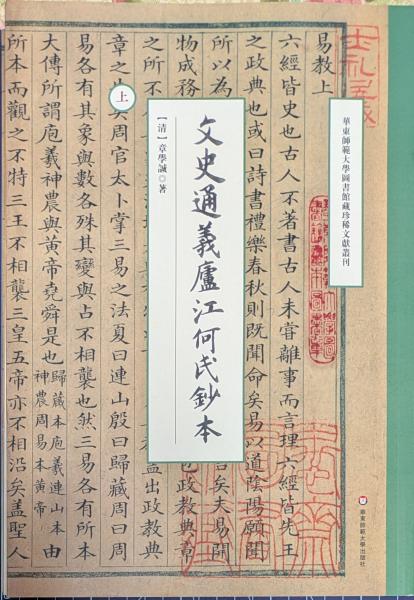 華東師範大學圖書館藏珍稀文獻叢刊
文史通義廬江何氏鈔本
上
【清】章學誠◎著
易教上
六經皆史也古人不著書古人未嘗離事而言理六經皆先王
之政典也或曰詩書禮樂春秋則既聞命矣易以道陰陽願聞
所以為
矣夫易開
物成務
政教典章
之所不
出政教典
章之
矣周官太卜掌三易之法夏曰連山殷曰歸藏周曰周
易各有其象與數各殊其變與占不相襲也然三易各有所本
大傳所謂庖羲神農與黃帝堯舜是也
歸藏本庖羲連山本
神農周易本黃帝
由
所本而觀之不特三王不相襲三皇五帝亦不相沿矣蓋聖人
華東師範大學出版社